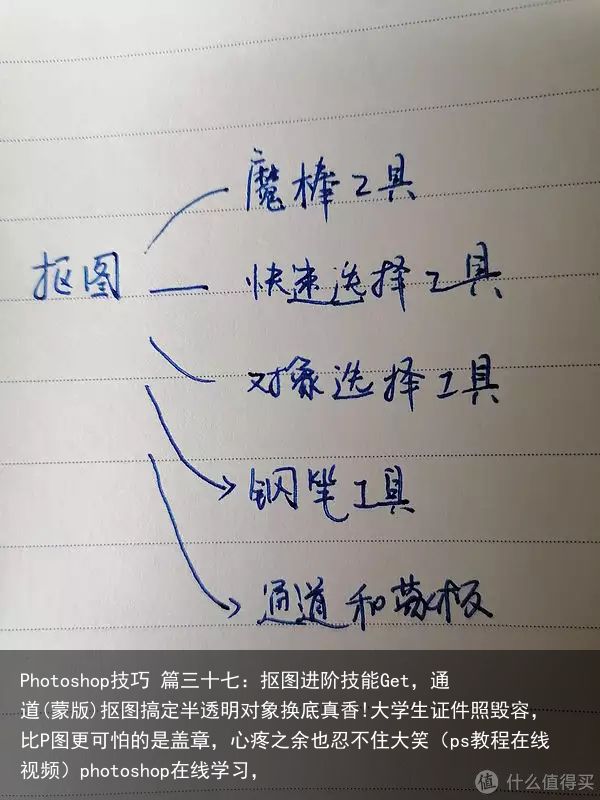 魔棒工具
抠图
快速选择工具
对象选择工具
钢笔工具
通道和蒙板
Photoshop技巧 篇三十七：抠图进阶技能Get，通
道(蒙版)抠图搞定半透明对象换底真香!大学生证件照毁容，
比P图更可怕的是盖章，心疼之余也忍不住大笑（ps教程在线
视频）photoshop在线学习，
值 什么值得买